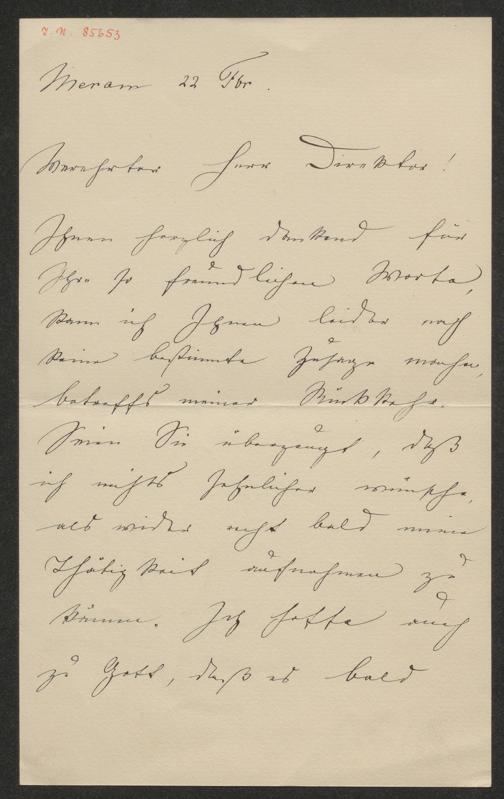 I. N. 85653
Meran 22 Fbr.
Verehrter Herr Direktor!
Ihnen herzlich dankend für
Ihre so freundlichen Worte,
kann ich Ihnen leider noch
keine bestimmte Zusage machen,
betreffs meiner Rückkehr.
Seien Sie überzeugt, daß
ich nichts sehnlicher wünsche,
als wider recht bald meine
Thätigkeit aufnehmen zu
können. Ich hoffe auch
zu Gott, daß es bald